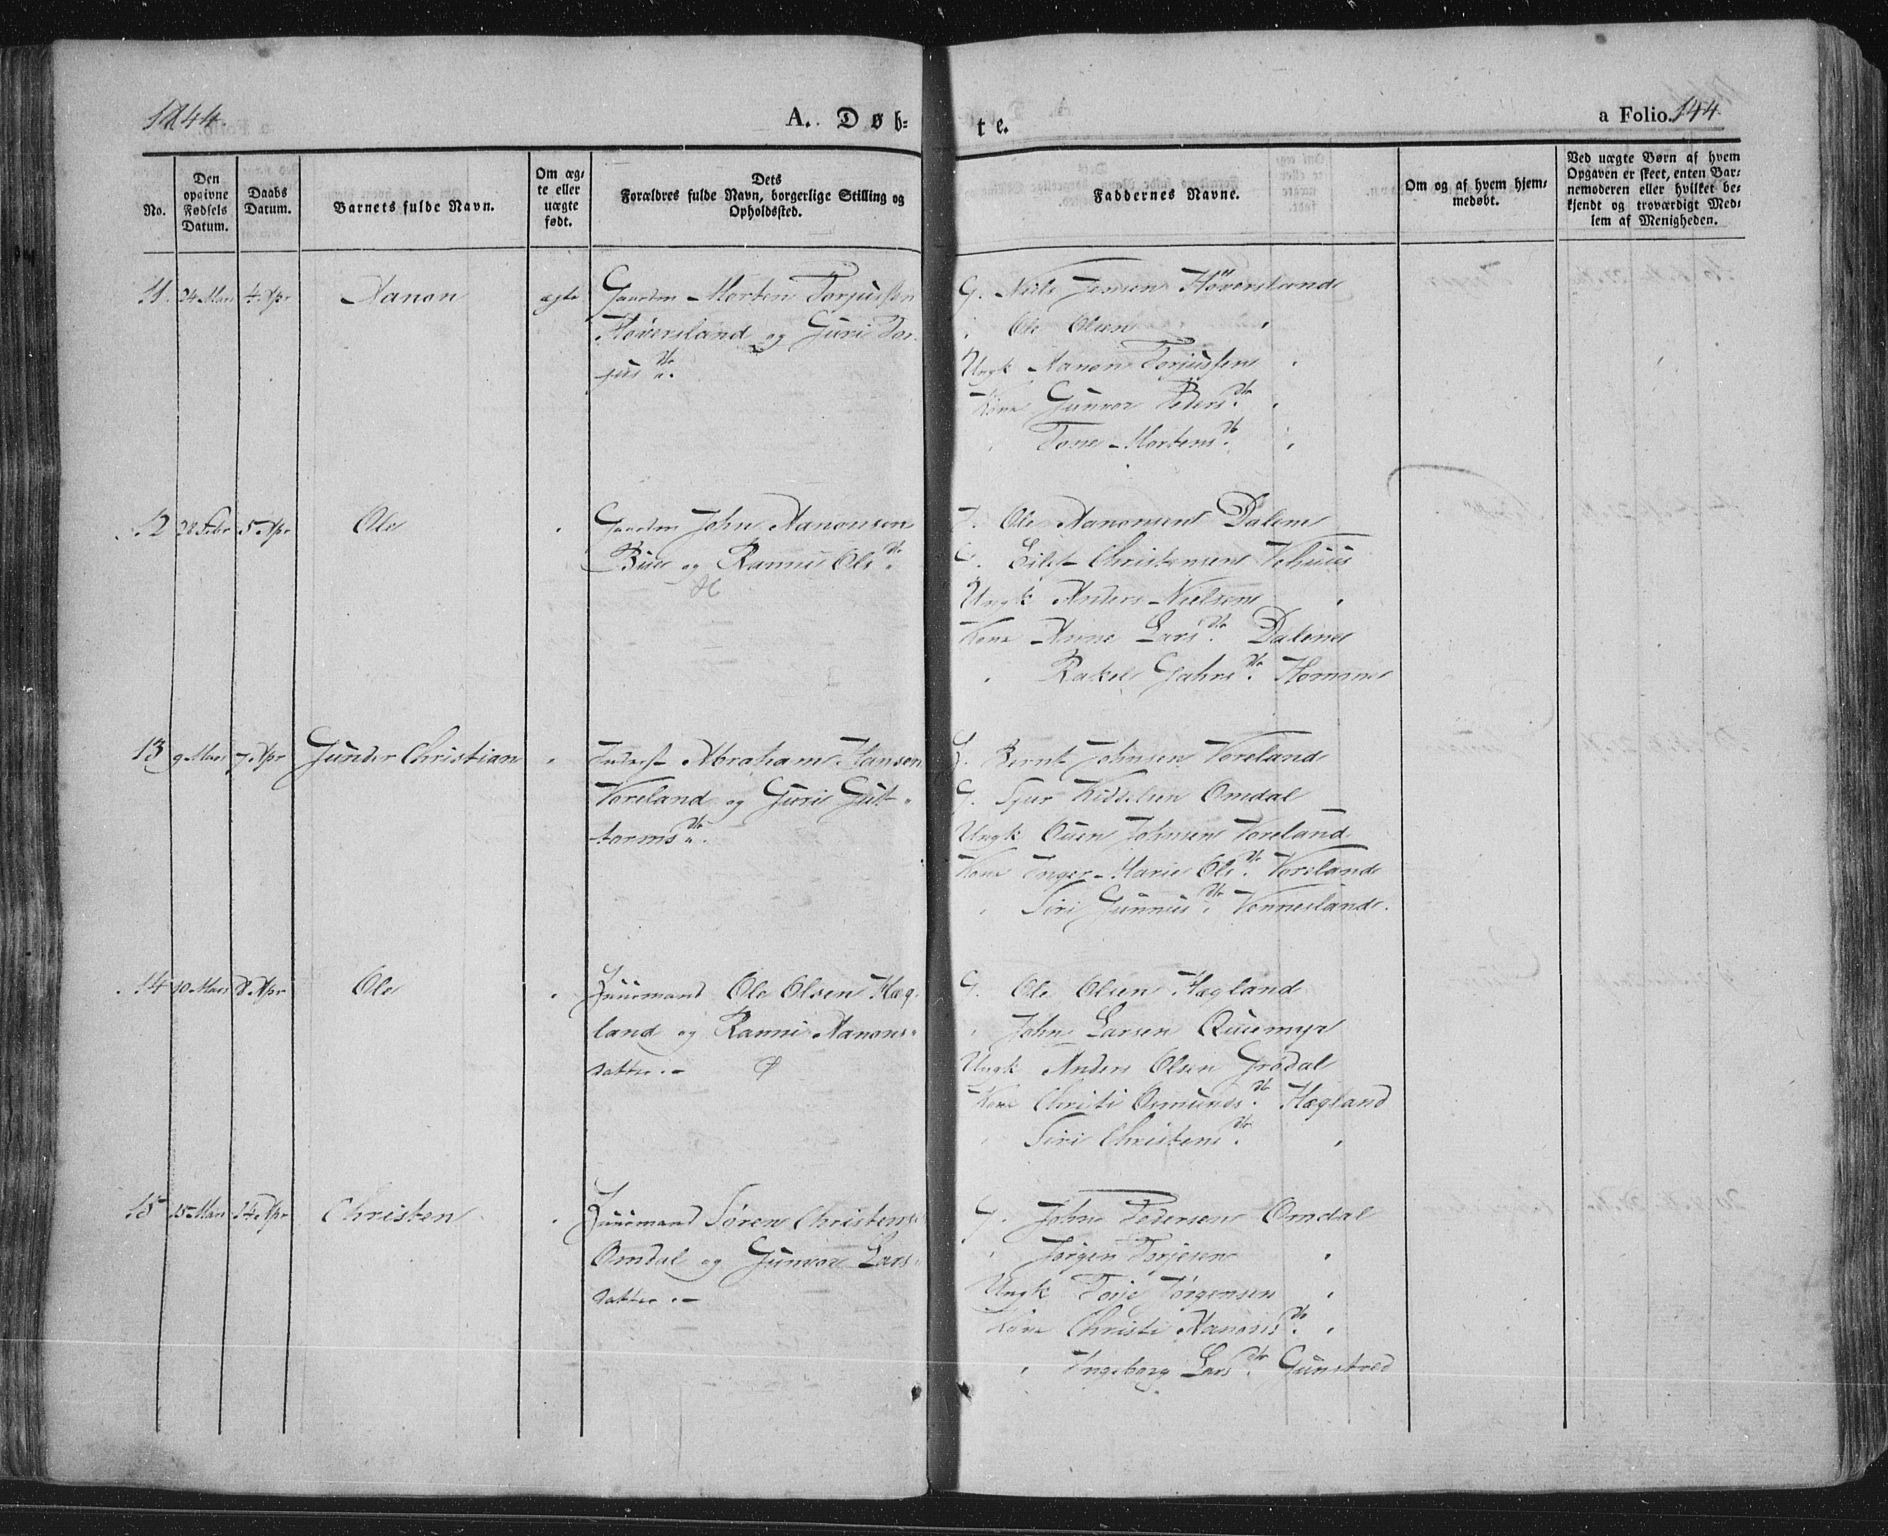 1844.
A. Døb-
te.
a Folio. 144.
No.
Den opgivne Fødsels Datum.
Daabs Datum.
Barnets fulde Navn.
Om ægte eller uægte født.
Dets Forældres fulde Navn, borgerlige Stilling og Opholdssted.
Faddernes Navne.
Om og af hvem hjemmedøbt.
Ved uægte Børn af hvem Opgaven er skeet, enten Barnemoderen eller hvilket bekjendt og troværdigt Medlem af Menigheden.
11. 24 Mars 4 Apr Aanon ægte Gaardm Morten Torjussen
Høversland og Guri Tor-
jus Dr.
G. Niels Jensen Høversland
Ole Olsen "
Ungk Aanon Torjussen "
Kone Gunvor Peders Dr. "
" Tone Mortens Dr. "
12 28 Febr 5 Apr Ole " Gaardm John Aanonsen
Bue og Ranni Ols Dr.
Ole Aanonsen Dalen
G. Eilef Christensen Vehuus
Ungk Anders Nielsen "
Kone Anne Lars Dr. Dalene
" Rakel Gjahrs Dr. Homme
13 9 Mars 7 Apr Gunder Christian " Inderst Abraham Hansen
Voreland og Guri Gut-
torms Dr.
G. Bernt Johnsen Voreland
G. Sjur Kittelsen Omdal
Ungk Ouen Johnsen Voreland
Kone Inger Marie Ols Dr. Voreland
" Siri Gunnus Dr. Vennesland.
14 10 Mars 8 Apr Ole " Huusmand Ole Olsen Hæg-
land og Ranni Aanons-
datter.
G. Ole Olsen Hægland
" John Larsen Quiemyr
Ungk Anders Olsen Grødal
Kone Christi Osmunds Dr. Hægland
" Siri Christens Dr. "
15 15 Mars 14 Apr Christen " Huusmand Søren Christens.
Omdal og Gunvor Lars-
datter.
G. John Pedersen Omdal
" Jørgen Torjesen "
Ungk Torje Jørgensen "
Kone Christi Aanons Dr. "
" Ingeborg Lars Dr. Gunstved